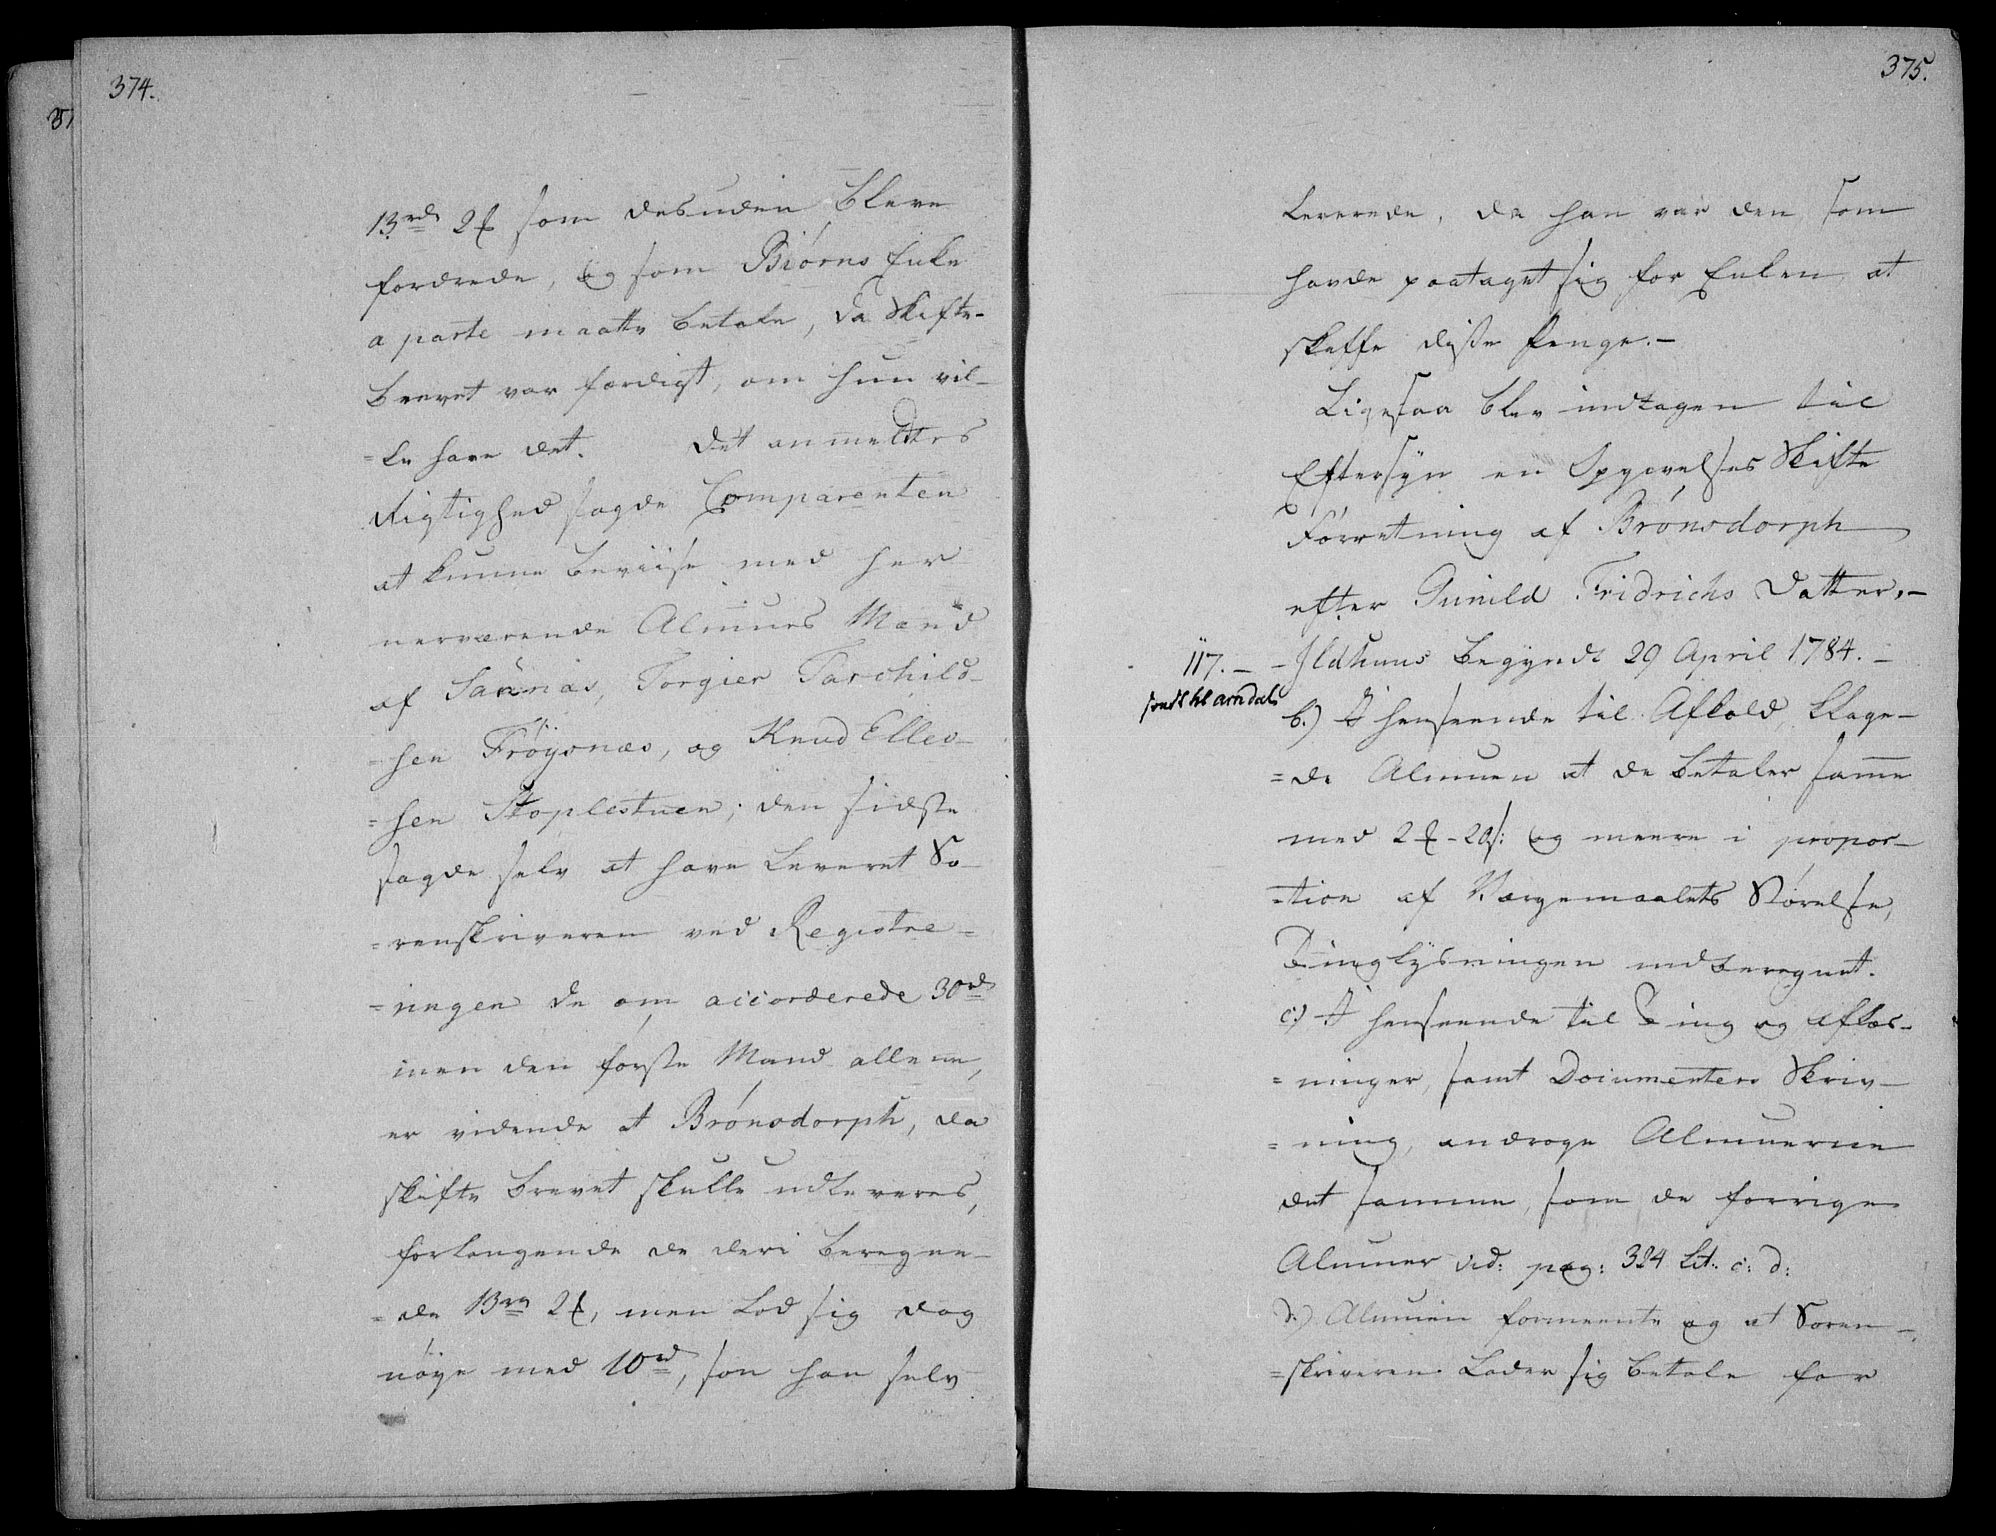 374.
13 rd 2 # som desuden bleve
fordrede, og som Biørns Enke
a parte maatte betale, da Skifte-
brevet var færdigt, om hun vil-
=le have det. Det anmeldtes
Rigtighed sagde Comparenten
at kunne beviise med her
nerværende Almues Mænd
af Saanas, Torgier Tarchild-
=sen Frøÿsnæs, og Knud Elles-
=sen Stoplestuen; den sidste
sagde selv at have leveret So-
=renskriveren ved Registre-
=ringen de om accorderede 30 rd
men den første Mand allene,
er vidende at Brønsdorph, da
skifte brevet skulle udleveres,
forlangende de deri beregne-
=de 13 rd 2 #, men lod sig dog
nöye med 10 rd, som han selv
375.
leverede, da han var den, som
havde paataget sig for Enken at
skaffe disse Penge.-
Ligesaa blev indtagen til
Eftersyn en Opgivelses Skifte
Forretning af Brønsdorph
efter Gunild Fridrichs Datter.-
117.- - Ildhuus begyndt 29 April 1784.-
sendt til arndals
b.) I henseende til Afkald, klage-
=de Almuen at de betaler samme
med 2 # - 20 s: og meere i propor-
=tion af Værgemaalets Størelse,
Tinglysningen indberegnet.
c.) I henseende til Ting og aflæs-
=ninger, samt Documenters Skriv-
=ning, androge Almuerne
det samme, som de forrige
Almuer vid: pag: 324 Lit: c: d:
d.) Almuen formeente og at Soren-
=skriveren lader sig betale for